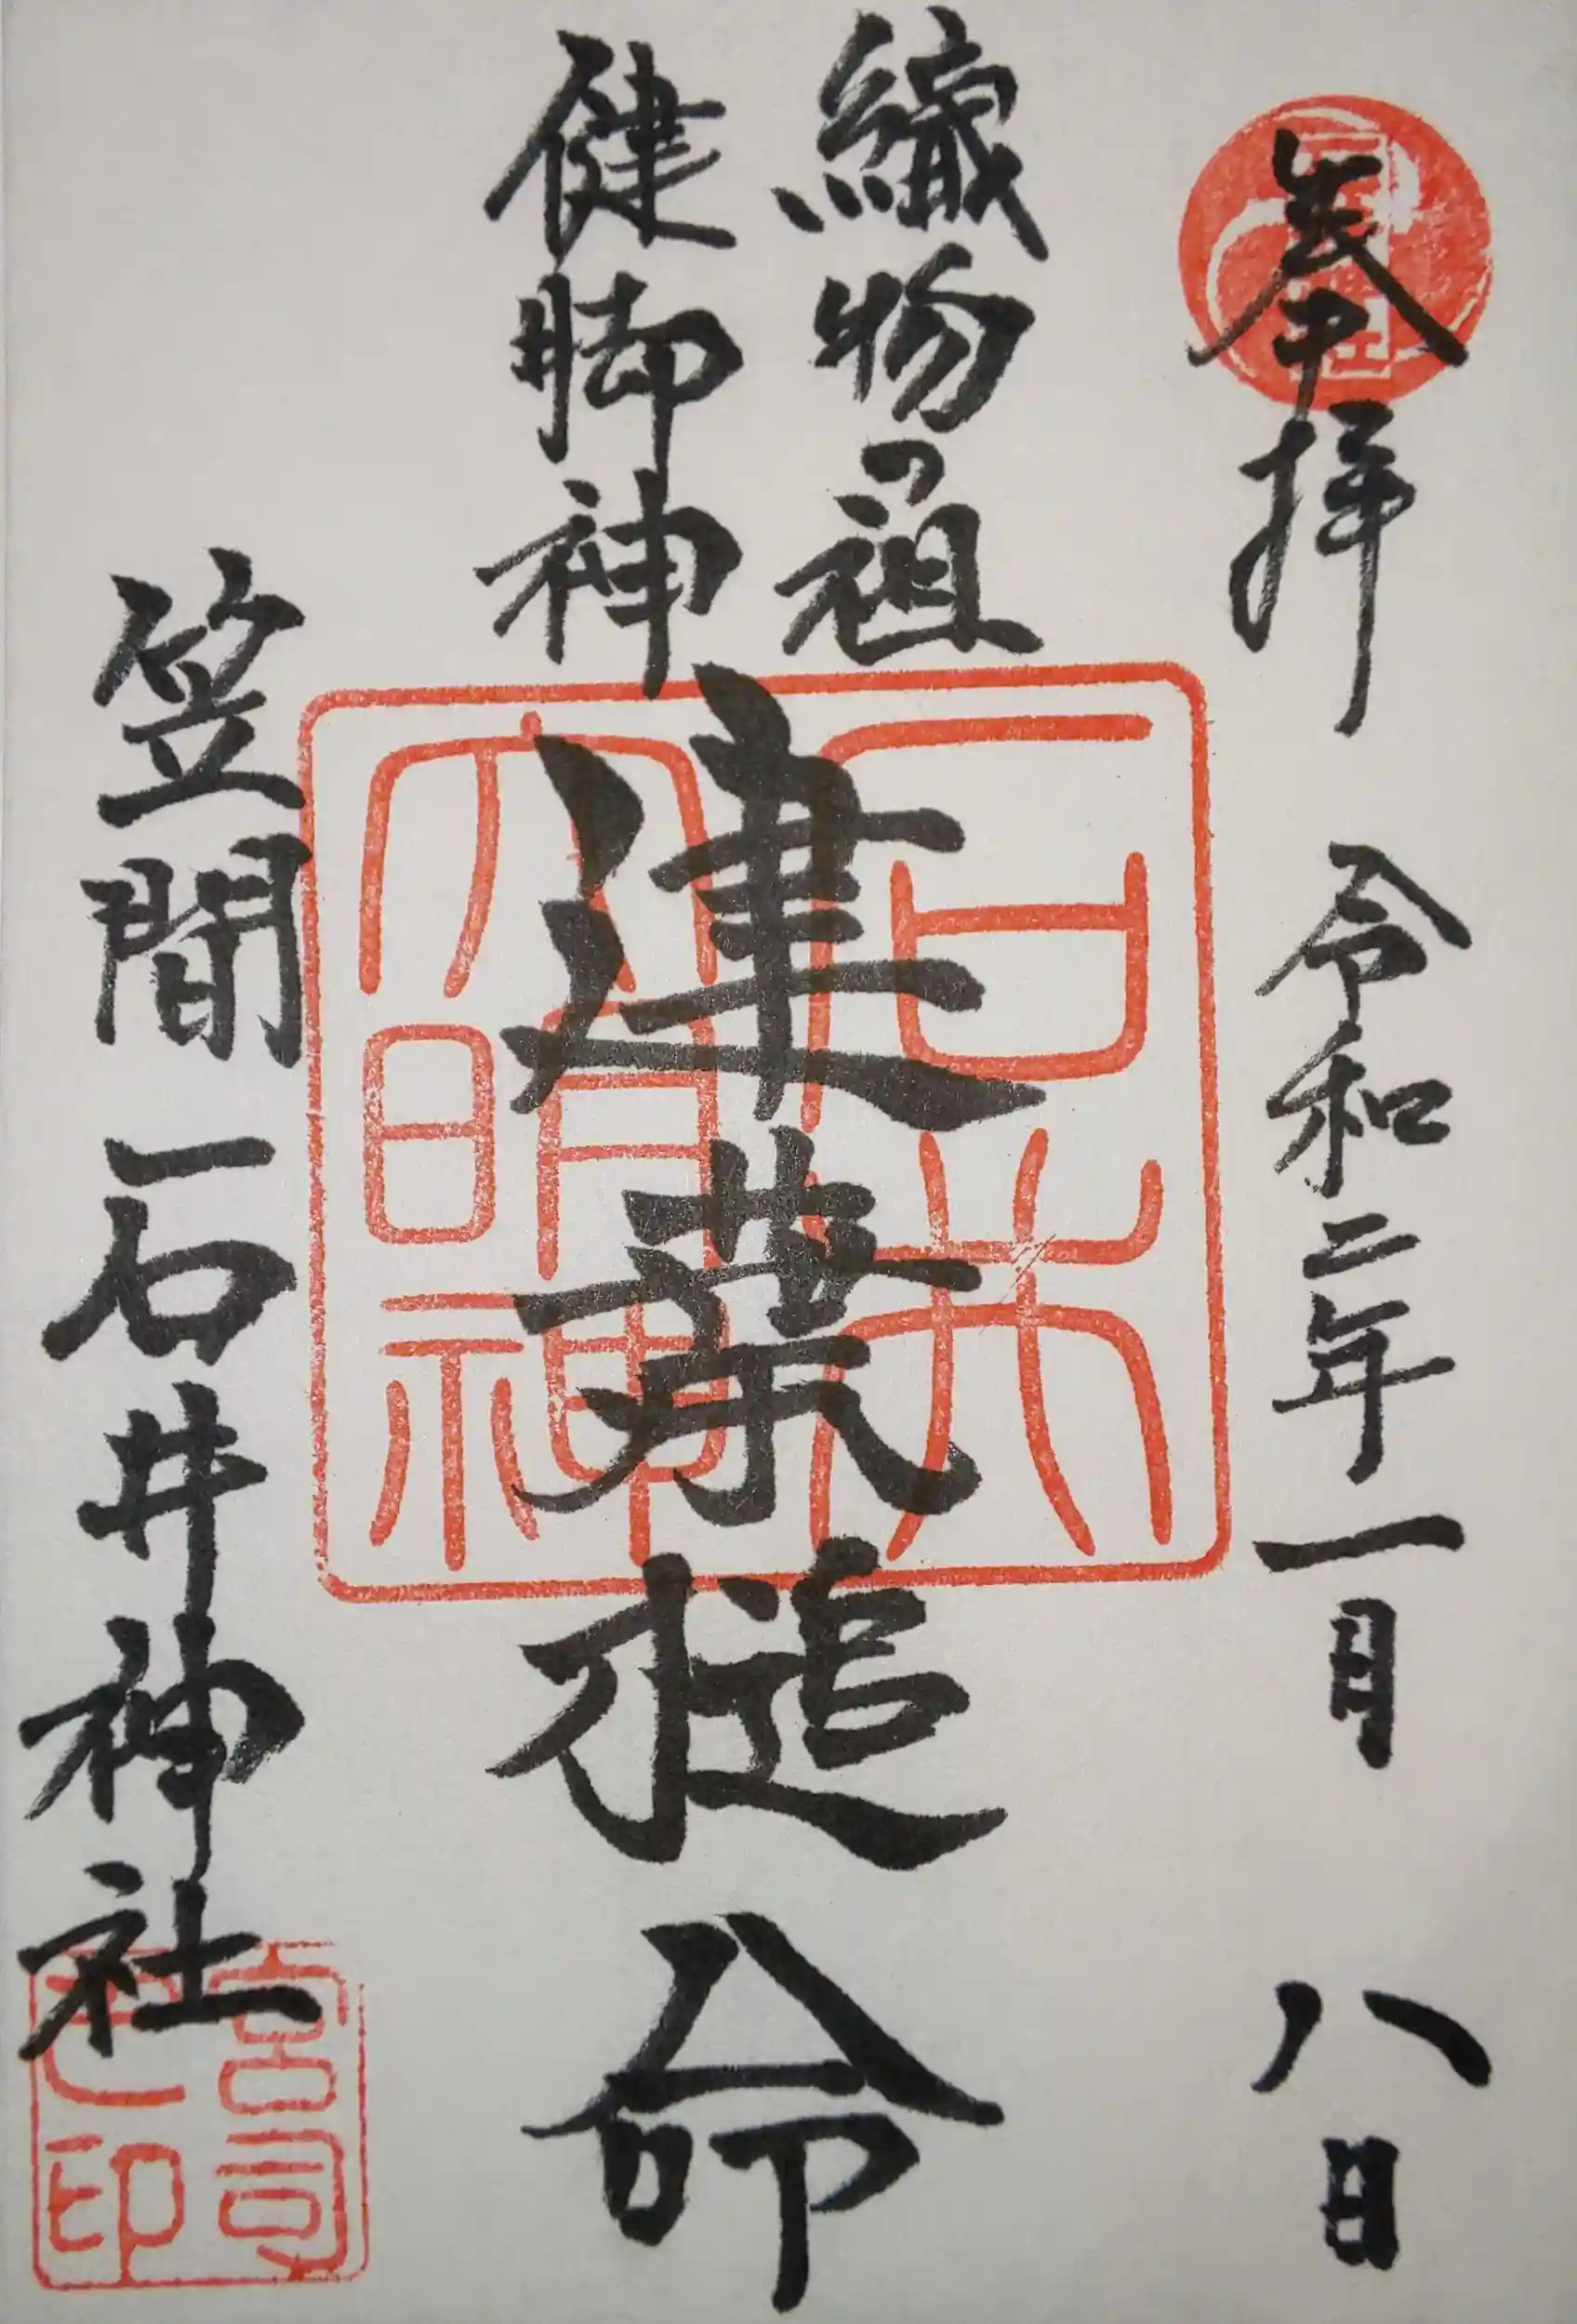 奉拝 令和二年一月八日
織物の祖
健脚神
建葉槌命
石井大明神
笠間 石井神社
宮司之印